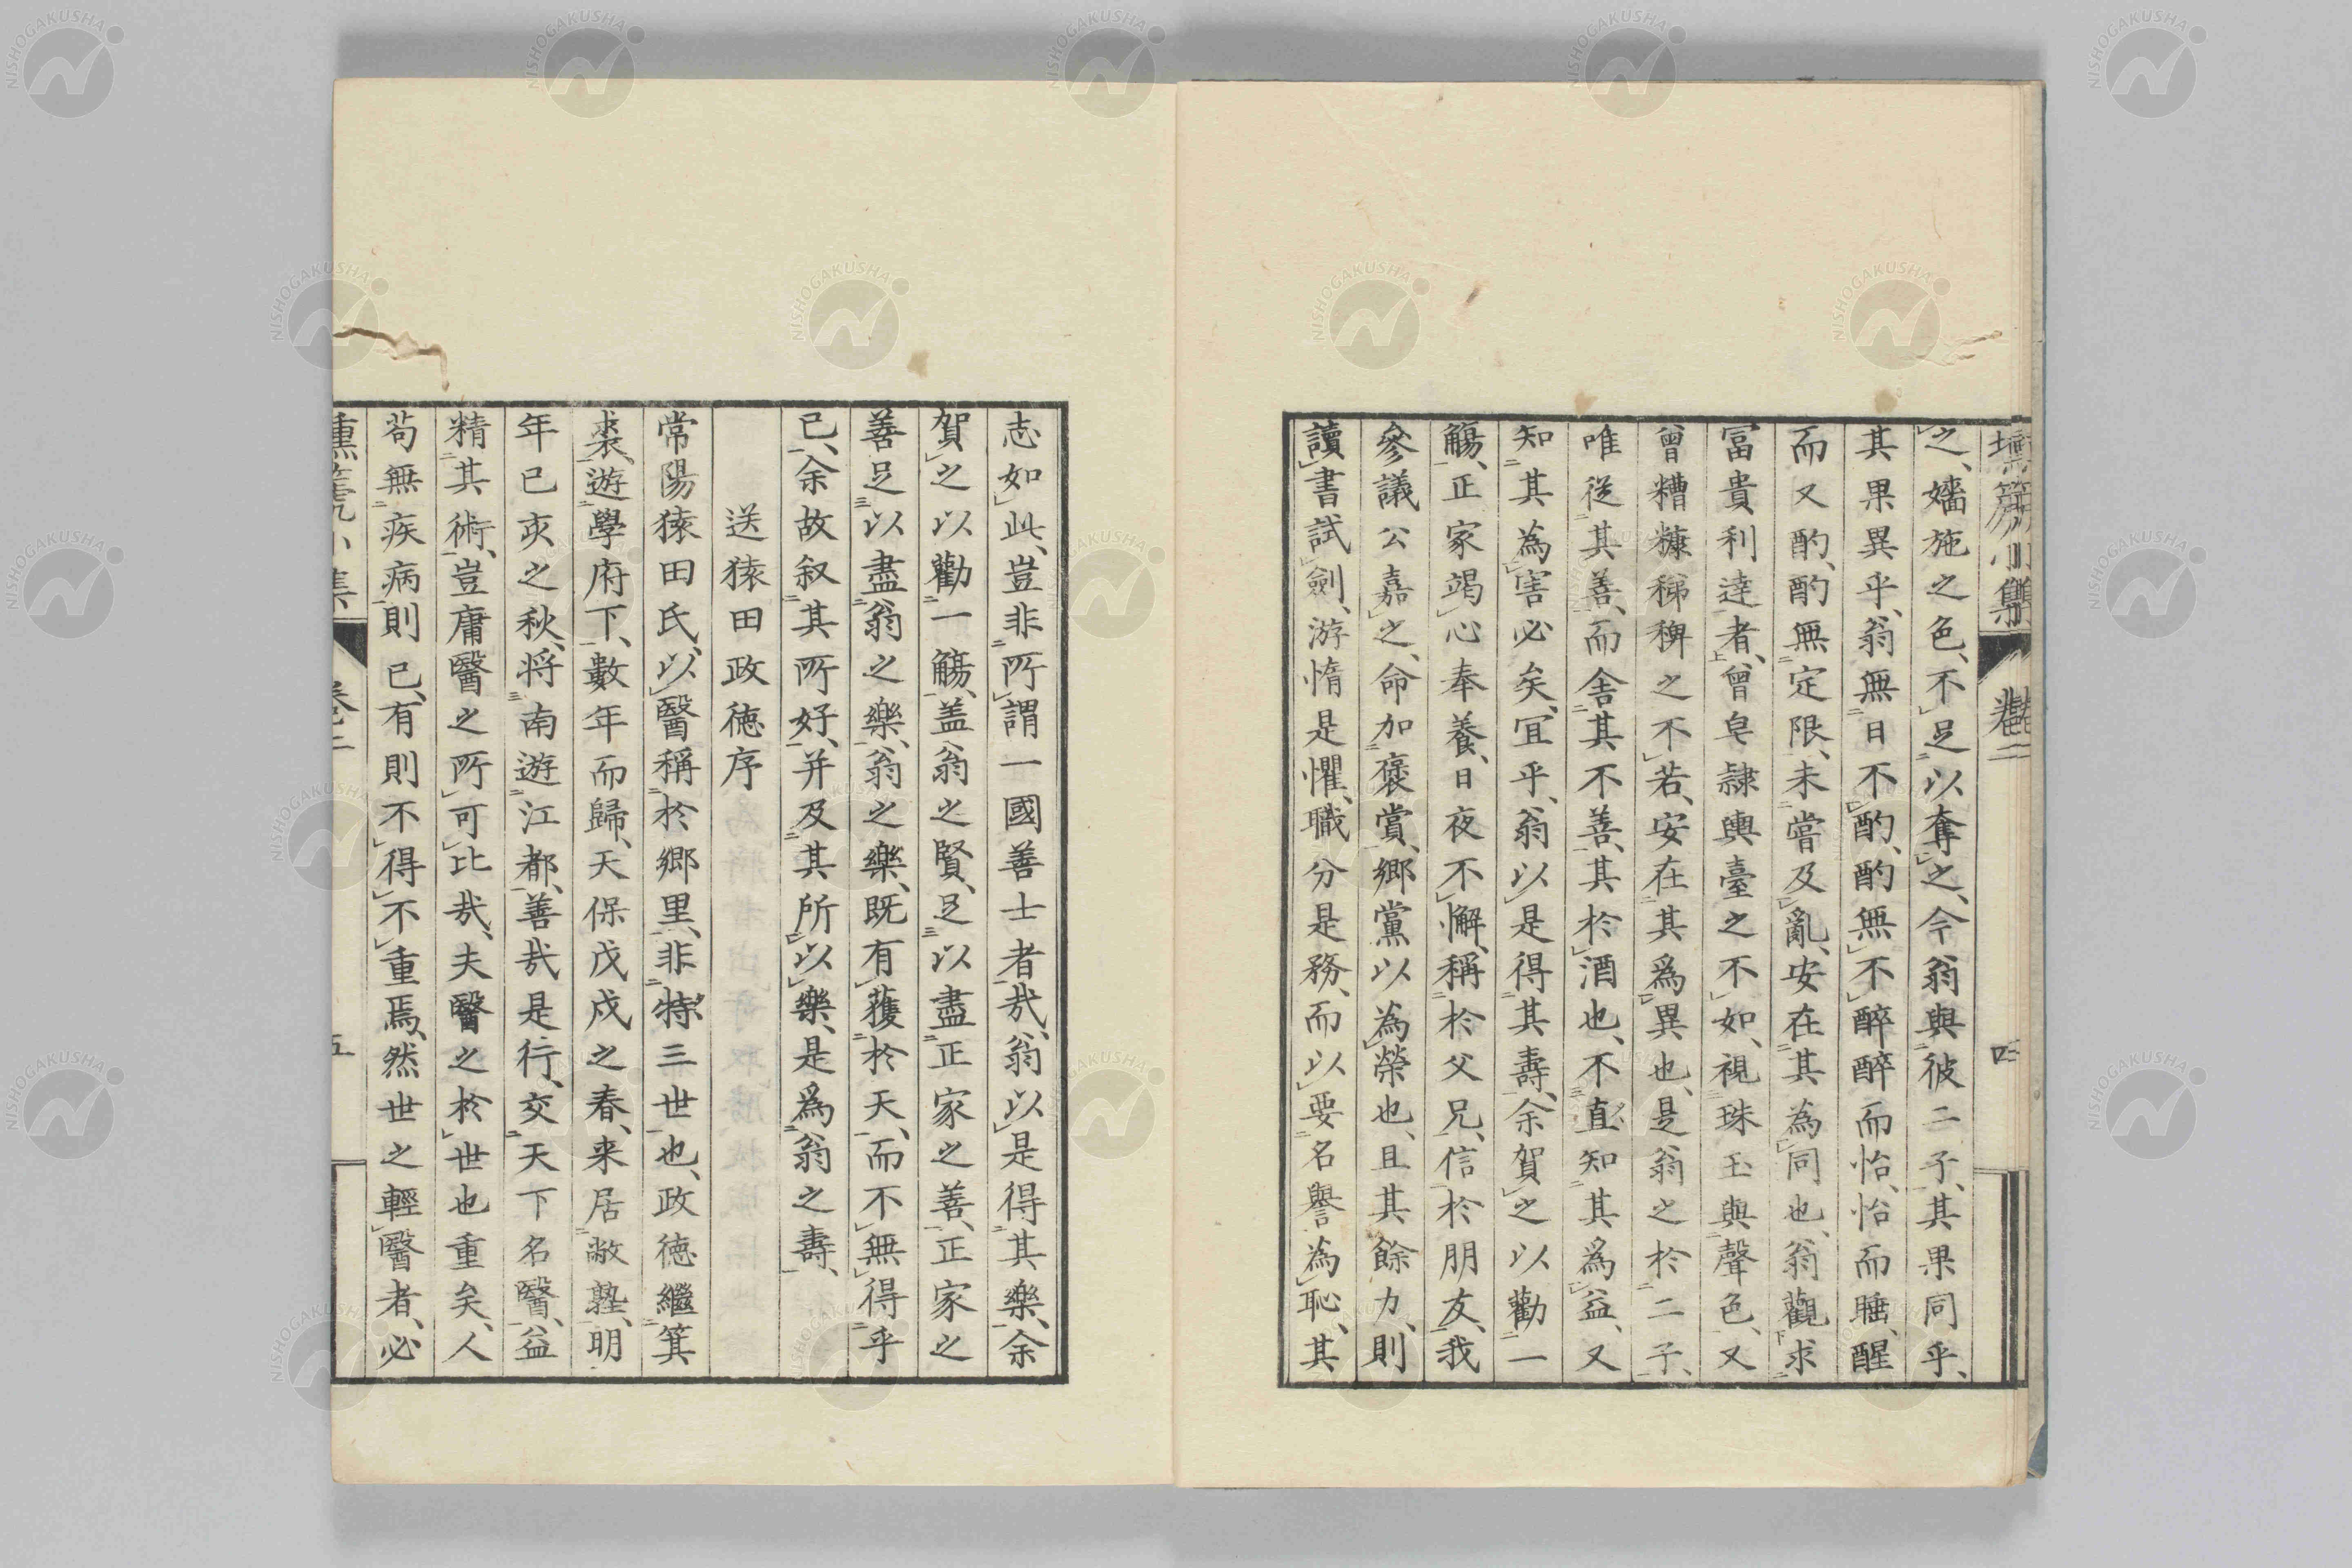 之、嬙施之色、不足以奪之、今翁與彼二子、其果同乎、
其果異乎、翁無日不酌、酌無不醉醉而怡、怡而睡、醒
而又酌、酌無定限、未嘗及亂、安在其為同也、翁觀求
富貴利達者、曾皂隷輿臺之不如、視珠玉與聲色、又
曾糟糠稊稗之不若、安在其爲異也、是翁之於二子、
唯從其善、而舍其不善、其於酒也、不直知其爲益、又
知其為害必矣、宜乎、翁以是得其壽、余賀之以勸一
觴、正家竭心奉養、日夜不懈、稱於父兄、信於朋友、我
參議公嘉之、命加褒賞、鄉黨以為榮也、且其餘力、則
讀書試劍、游惰是懼、職分是務、而以要名譽為恥、其
志如此、豈非所謂一國善士者哉、翁以是得其樂、余
賀之以勸一觴、盖翁之賢、足以盡正家之善、正家之
善足以盡翁之樂、翁之樂、既有獲於天、而不無得乎
已、余故叙其所好、并及其所以樂、是爲翁之壽、
送猿田政德序
常陽猿田氏、以醫稱於鄉里、非特三世也、政徳繼箕
裘、遊學府下、數年而歸、天保戊戌之春、来居敝塾、明
年己亥之秋、将南遊江都、善哉是行、交天下名醫、益
精其術、豈庸醫之所可比哉、夫醫之於世也重矣、人
苟無疾病則已、有則不得不重焉、然世之輕醫者、必